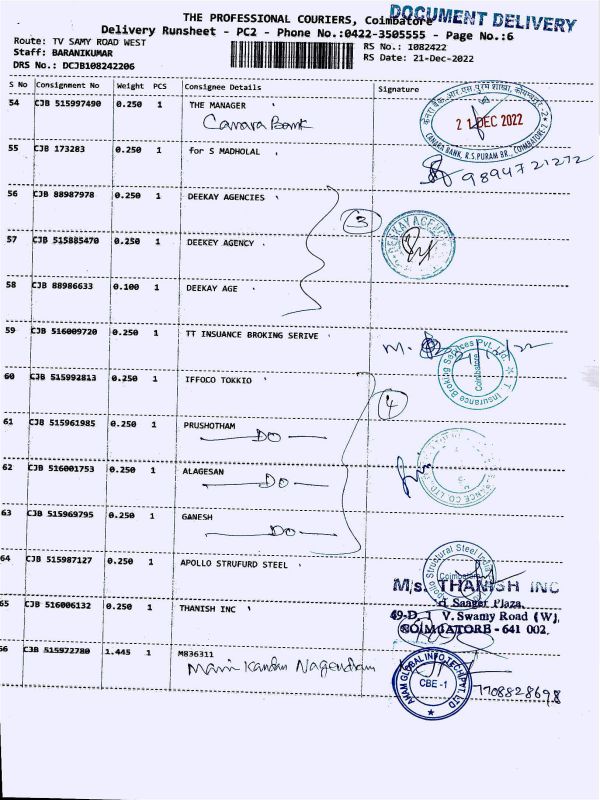 THE PROFESSIONAL COURIERS, Coimbatore
DOCUMENT DELIVERY
Delivery Runsheet - PC2 - Phone No.:0422-3505555 - Page No.:6
Route: TV SAMY ROAD WEST
RS No.: I082422
Staff: BARANIKUMAR
RS Date: 21-Dec-2022
DRS No.: DCJB108242206
S No Consignment No Weight PCS Consignee Details Signature
54 CJB 515997490 0.250 1 THE MANAGER
Canara Bank
21 DEC 2022
CANARA BANK, R.S.PURAM BR., COIMBATORE
55 CJB 173283 0.250 1 for S MADHOLAL
9894721272
56 CJB 88987978 0.250 1 DEEKAY AGENCIES
3
57 CJB 515885470 0.250 1 DEEKEY AGENCY
58 CJB 88986633 0.100 1 DEEKAY AGE
59 CJB 516009720 0.250 1 TT INSUANCE BROKING SERIVE
Insurance Broking Services Pvt. Ltd.
Coimbatore
60 CJB 515992813 0.250 1 IFFOCO TOKKIO
4
61 CJB 515961985 0.250 1 PRUSHOTHAM
DO
62 CJB 516001753 0.250 1 ALAGESAN
DO
63 CJB 515969795 0.250 1 GANESH
DO
64 CJB 515987127 0.250 1 APOLLO STRUFURD STEEL
Apollo Structural Steel India
Coimbatore
M/s. THANISH INC
65 CJB 516006132 0.250 1 THANISH INC
Saager Plaza,
49-D, V. Swamy Road (W),
COIMBATORE - 641 002.
66 CJB 515972780 1.445 1 M836311
Mani Kandan Nagendram
CBE -1
7708828698